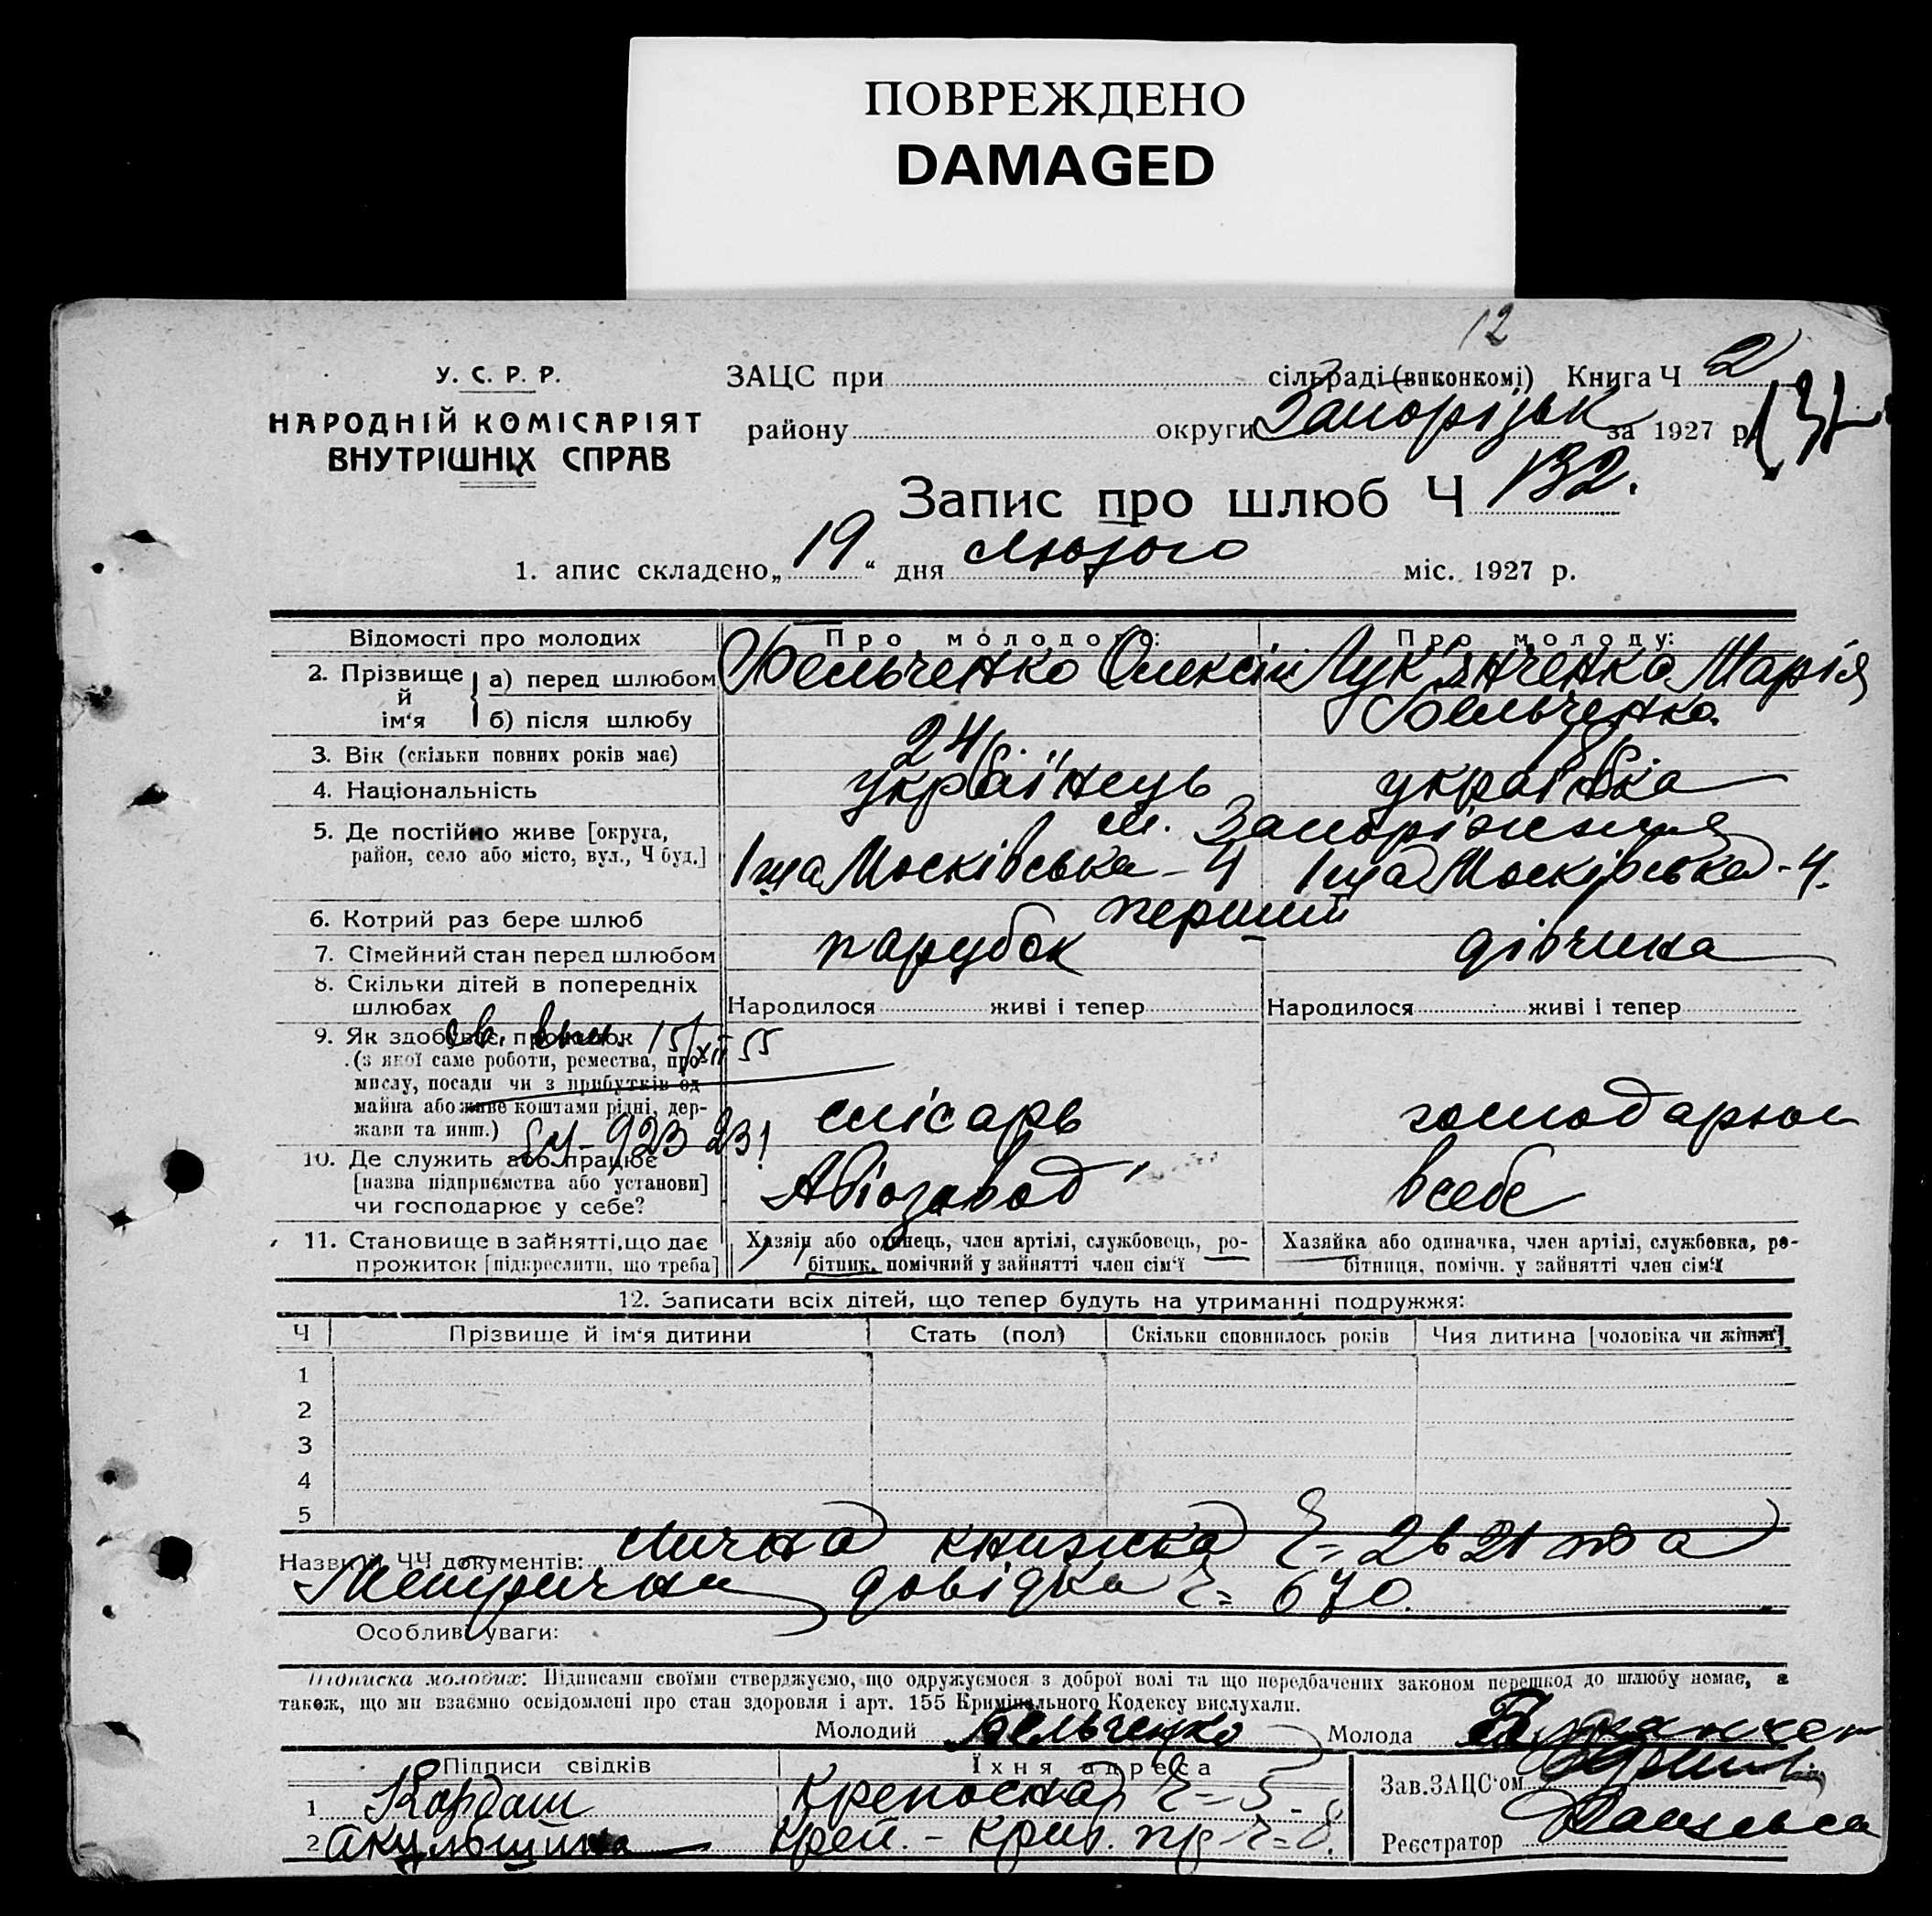 ПОВРЕЖДЕНО
DAMAGED
12
У. С. Р. Р.
НАРОДНІЙ КОМІСАРІЯТ
ВНУТРІШНІХ СПРАВ
ЗАЦС при сільраді (виконкомі) Книга Ч 2
району округи Запорізьк за 1927 р.
Запис про шлюб Ч 132.
1. апис складено „19“ дня Лютого міс. 1927 р.
Відомості про молодих Про молодого: Про молоду:
2. Прізвище й ім'я а) перед шлюбом Бельченко Олексій Лук'янченко Марія
б) після шлюбу Бельченко
3. Вік (скільки повних років має) 24
4. Національність українець українка
5. Де постійно живе [округа, район, село або місто, вул., Ч буд.] м. Запоріжжя
1ша Московська - 4 1ша Московська - 4.
6. Котрий раз бере шлюб перший
7. Сімейний стан перед шлюбом парубок дівчина
8. Скільки дітей в попередніх шлюбах Народилося живі і тепер Народилося живі і тепер
9. Як здобуває прожиток
(з якої саме роботи, ремества, про-
мислу, посади чи з прибутків од
майна або живе коштами рідні, дер-
жави та инш.) слісарь господарює
св. выд. 15/XII 55
923231
10. Де служить або працює
[назва підприємства або установи]
чи господарює у себе? Авіозавод в себе
11. Становище в зайнятті, що дає
прожиток [підкреслити, що треба]
Хазяін або одинець, член артілі, службовець, ро-
бітник, помічний у зайнятті член сім'ї
Хазяйка або одиначка, член артілі, службовка, ро-
бітниця, помічн. у зайнятті член сім'ї
12. Записати всіх дітей, що тепер будуть на утриманні подружжя:
Ч Прізвище й ім'я дитини Стать (пол) Скільки сповнилось років Чия дитина [чоловіка чи жінки]
1
2
3
4
5
Назви й ЧЧ документів: Лична книжка Ч= 2621 та
Метрична довідка Ч= 670.
Особливі уваги:
Підписка молодих: Підписами своїми стверджуємо, що одружуємося з доброї волі та що передбачених законом перешкод до шлюбу немає, а
також, що ми взаємно освідомлені про стан здоровля і арт. 155 Кримінального Кодексу вислухали.
Молодий Бельченко Молода
Підписи свідків Їхня адреса
1 Кардаш Крепосная Ч= 5
2 Акульшина
Зав. ЗАЦС'ом
Реєстратор